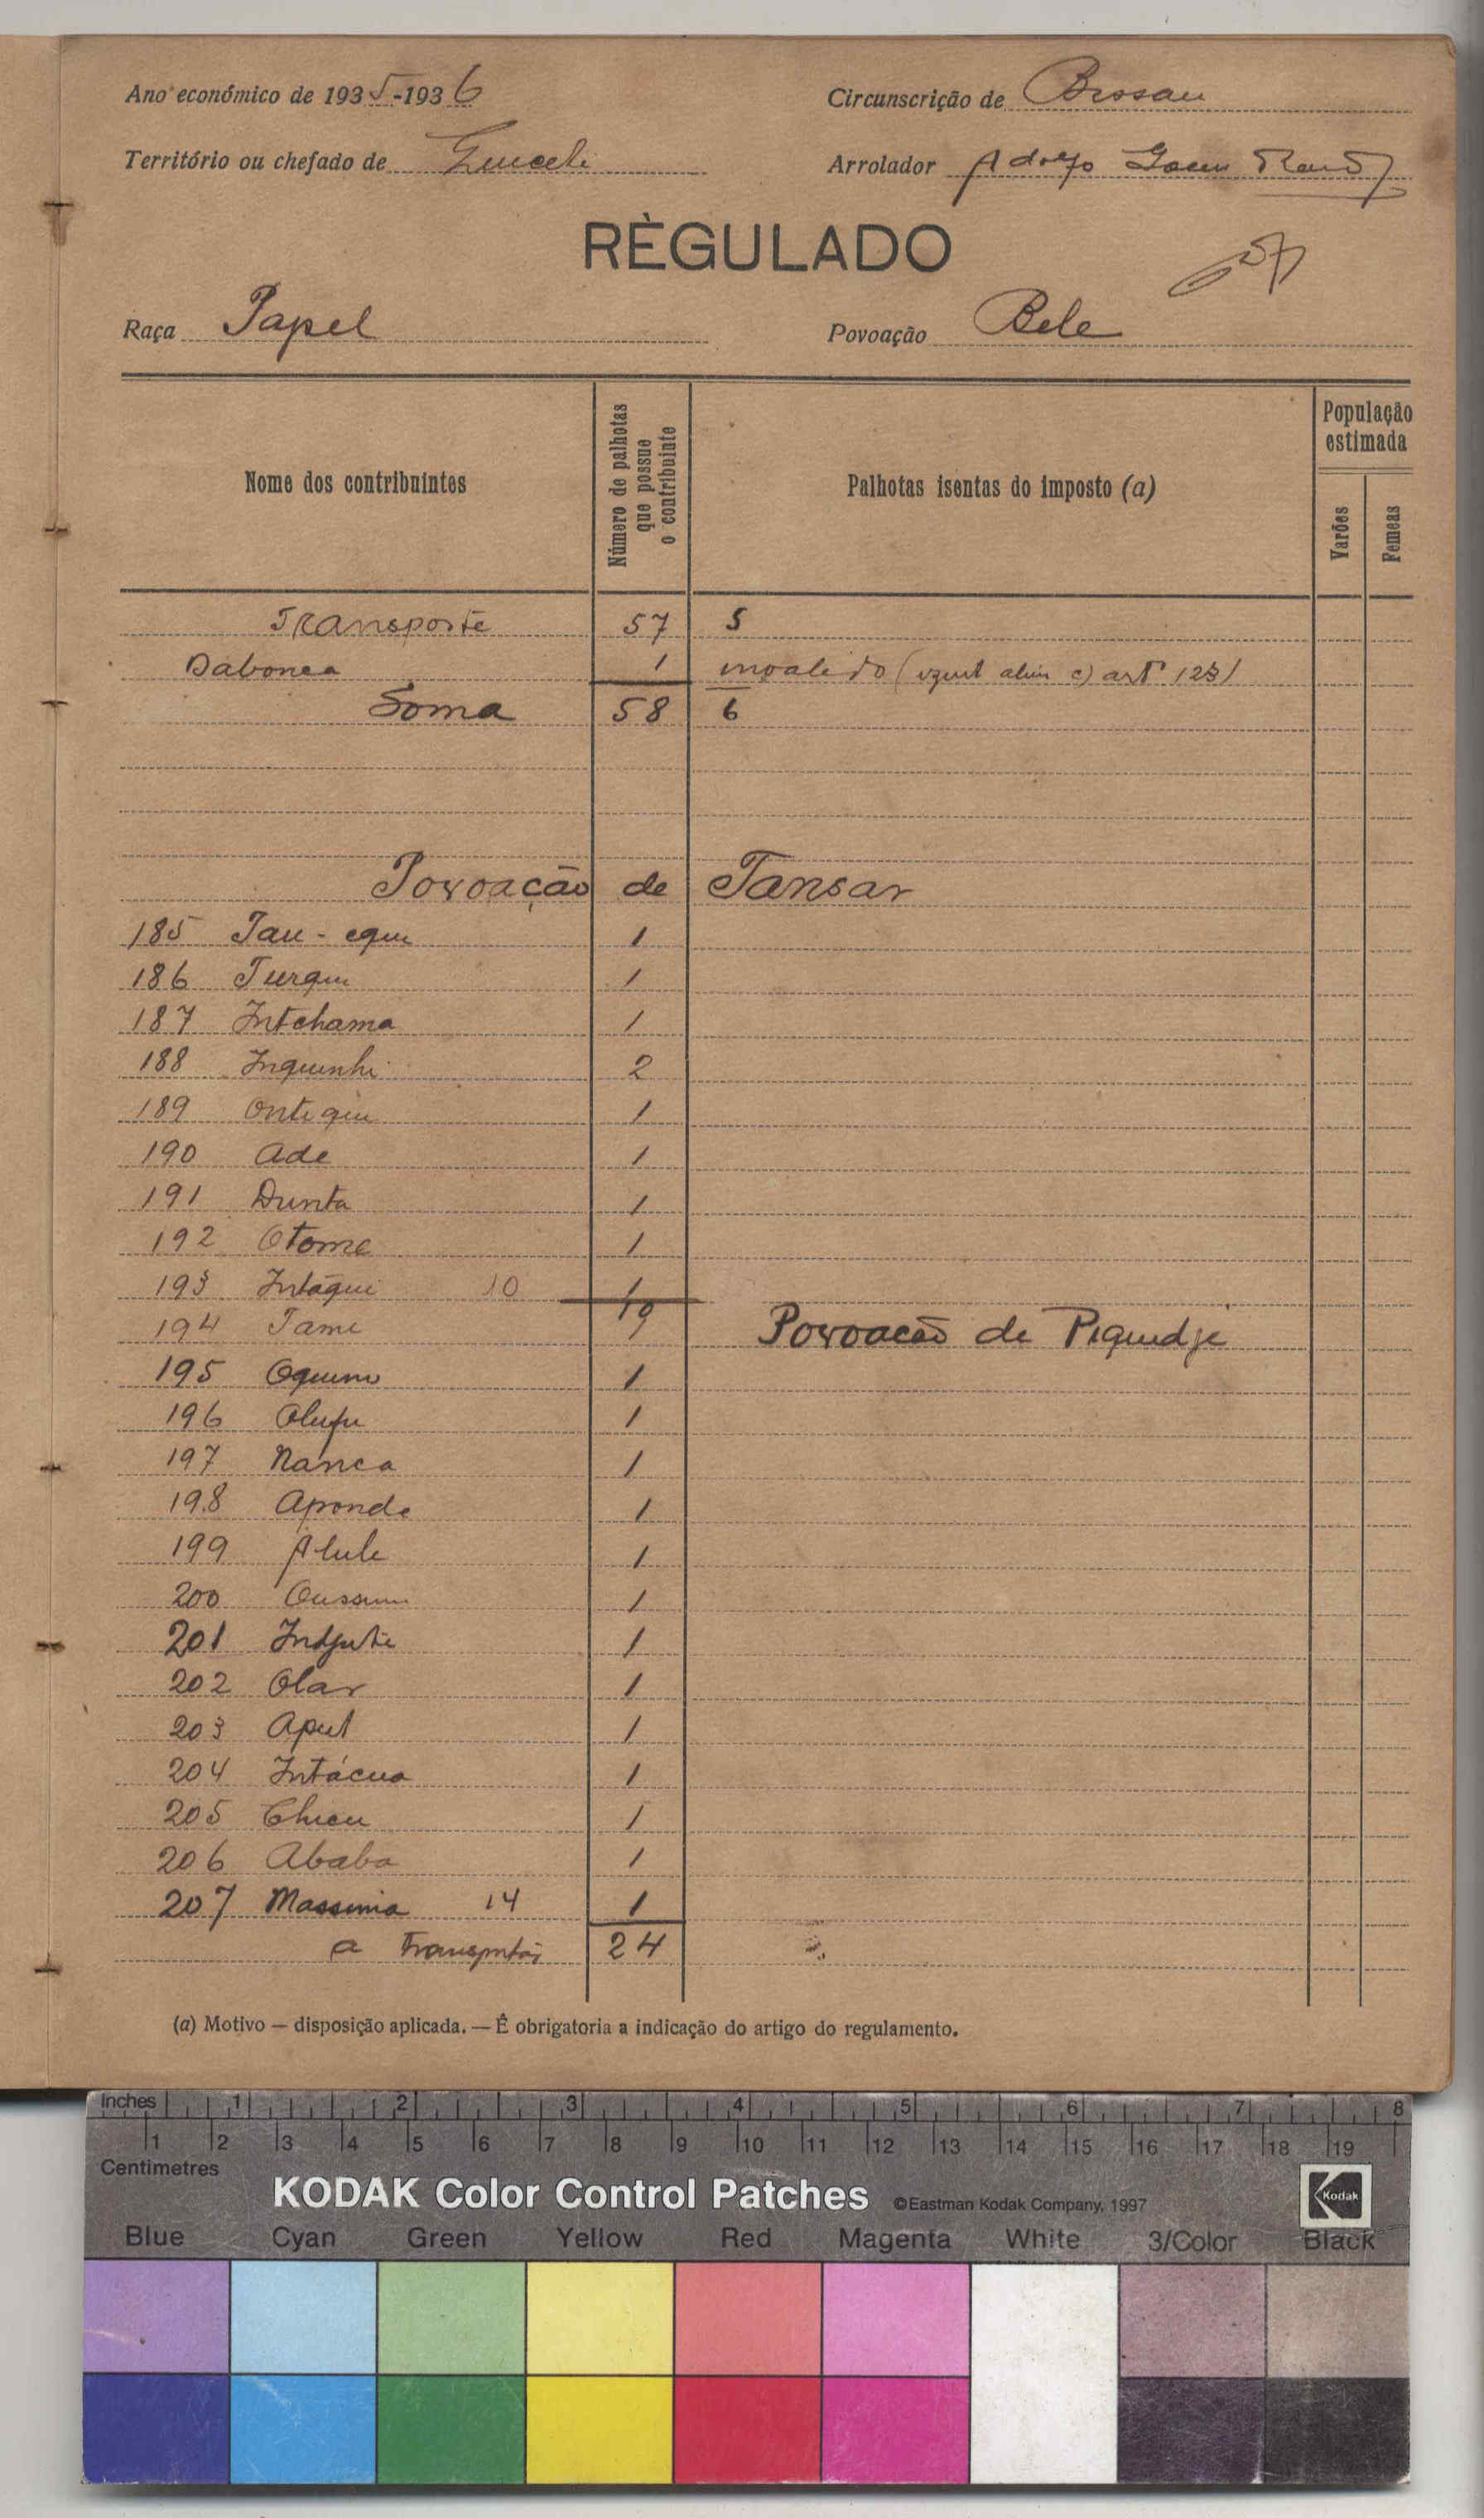 Ano económico de 1935-1936
Circunscrição de Bissau
Território ou chefado de
Arrolador Adolfo Gomes
RÈGULADO
Raça Papel
Povoação Bele
Nome dos contribuintes
Número de palhotas que possue o contribuinte
Palhotas isentas do imposto (a)
População estimada
Varões
Femeas
Transporte 57 5
Dabonca 1 invalido ( alin c) artº 123)
Soma 58 6
Povoação de Tansar
185 Tau - equi 1
186 Turqui 1
187 Intchama 1
188 Inquinhi 2
189 Ontequi 1
190 Ade 1
191 Dunta 1
192 Otome 1
193 Intáqui 10 1
194 Tame Povoação de Piquidje
195 1
196 Olufu 1
197 Nanca 1
198 Aponde 1
199 Alule 1
200 1
201 Indjute 1
202 Olar 1
203 Aput 1
204 Intácua 1
205 Chicu 1
206 Ababa 1
207 Massima 14 1
a Transportar 24
(a) Motivo — disposição aplicada. — É obrigatoria a indicação do artigo do regulamento.
Inches 1 2 3 4 5 6 7 8
1 2 3 4 5 6 7 8 9 10 11 12 13 14 15 16 17 18 19
Centimetres
KODAK Color Control Patches ©Eastman Kodak Company, 1997 Kodak
Blue Cyan Green Yellow Red Magenta White 3/Color Black